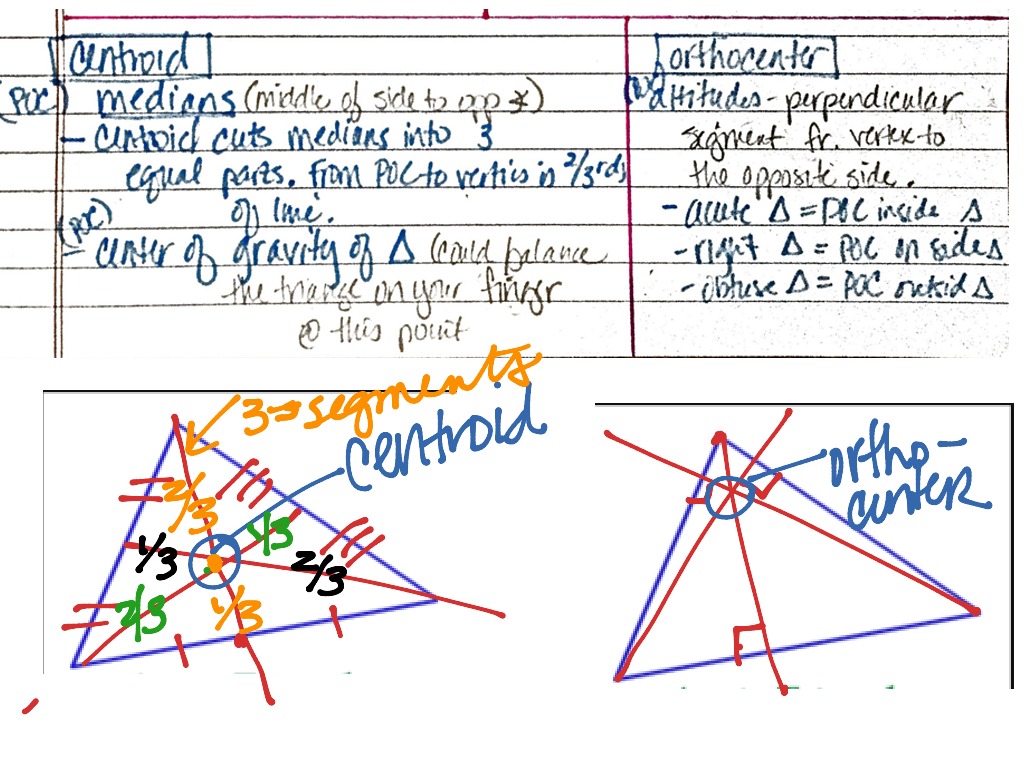 centroid
(POC) medians (middle of side to opp ∢)
- centroid cuts medians into 3
equal parts. From POC to vertics is 2/3rds
of line.
(POC)
- center of gravity of Δ (could balance
the triange on your finger
@ this point
orthocenter
altitudes - perpendicular
segment fr. vertex to
the opposite side.
- acute Δ = POC inside Δ
- right Δ = POC on side Δ
- obtuse Δ = POC outsid Δ
3 → segments
centroid
2/3
1/3
1/3
2/3
2/3
1/3
ortho-
center